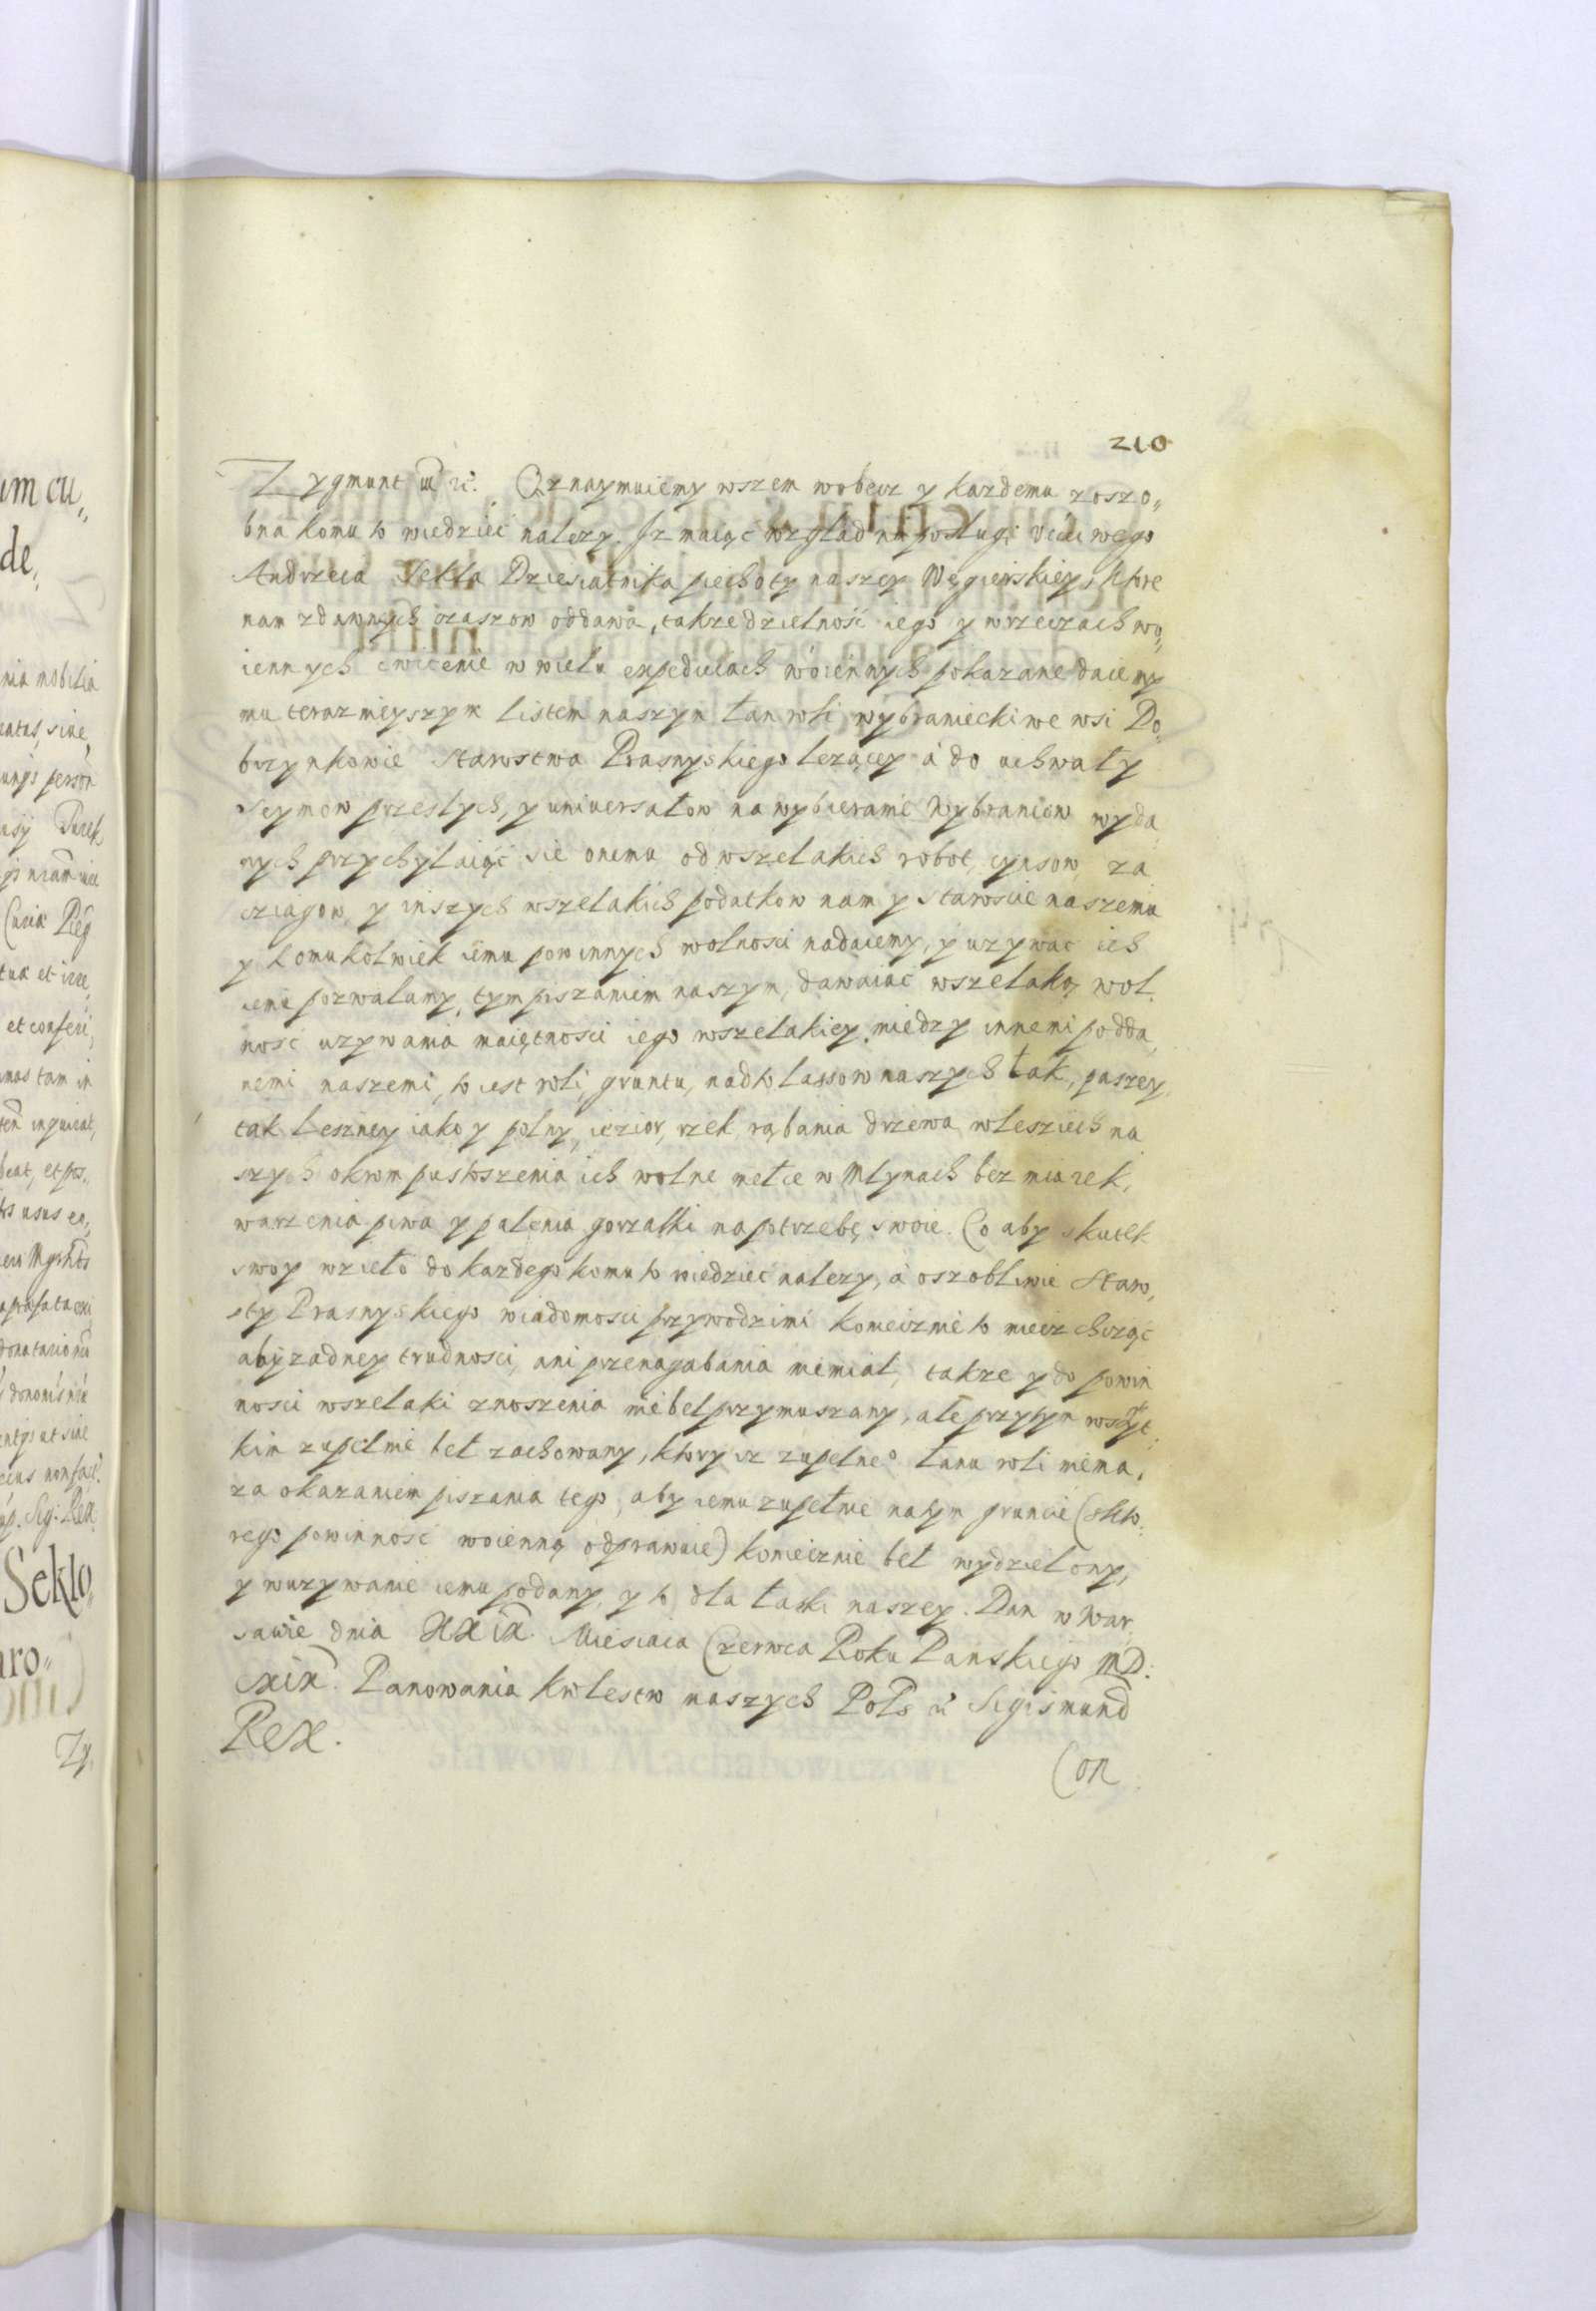 210
Zygmunt III etc. Oznaymuiemy wszem wobecz y kazdemu zoszo„
bna komu to wiedziec nalezy. Jz maiąc wzgląd na posługi Ucciwego
Andrzeia Sekla Dziesiatnika piechoty naszey Węgierskiey, ktore
nam zdawnych czaszow oddawa, takze dzielnosc iego y wrzeczach wo„
iennych cwiczenie w wielu expediciach woiennych pokazane daiemy
mu teraznieyszym Listem naszym łan roli wybraniecki we wsi Do„
brzynkowie Starostwa Prasnyskiego lezącey à do uchwały
Seymow przeslych, y universałow na wybieranie Wybrancow wyda
nych przychylaiąc sie onemu od wszelakich robot, cynsow, za
sciagow, y inszych wszelakich podatkow nam y Staroscie naszemu
y komukolwiek iemu powinnych wolnosci nadaiemy, y uzywac ich
iemu pozwalamy, tym piszaniem naszym, dawaiac wszelaką wol
nosc uzywania maiętnosci iego wszelakiey, miedzy innemi podda
nemi naszemi, to iest roli, gruntu, nadto lassow naszych łak, paszey,
tak Leszney iako y polny, iezior, rzek, rąbania drzewa wlesziech na
szych okrom pustoszenia ich wolne mełcie w Mlynach bez miarek,
warzenia piwa y palenia gorzałki na potrzebę swoie. Co aby skutek
swoy wzieło do kazdego komu to wiedziec nalezy, à oszobliwie Staro,
sty Prasnyskiego wiadomosci przywodzimi koniecznie to miecz chcząc
aby zadney trudnosci, ani przenagabania niemial, takze y do powin
nosci wszelaki znoszenia niebel przymuszany, ale przytym wszyt
kim zupelnie bel zachowany, ktory isz zupelneo łanu roli niema,
za okazaniem piszania tego, aby iemu zupełnie natym gruncie (skto„
rego powinnosc woienną odprawuie) koniecznie beł wydzielony,
y wuzywanie iemu podany, y to dla łaski naszey. Dan w War„
sawie dnia XXIX. Miesiaca Czerwca Roku Panskiego MD.
CXIX. Panowania krolestw naszych Pols etc Sigismund
Rex.
Con